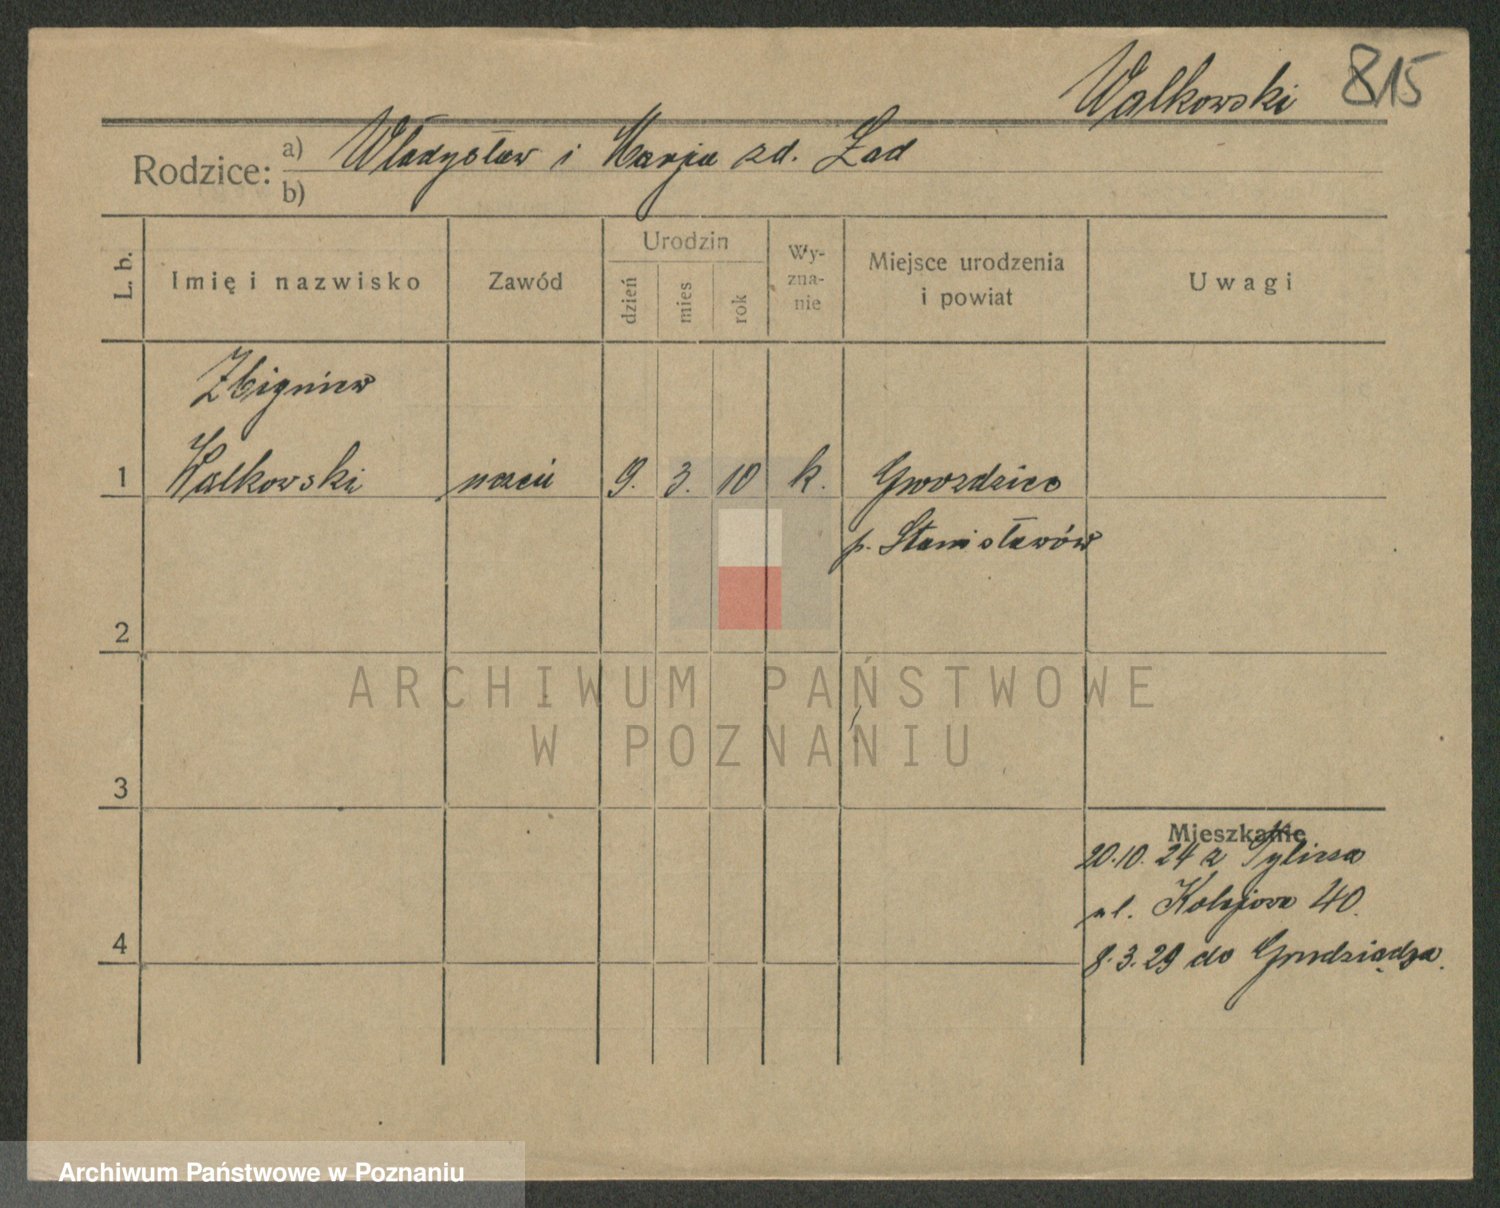 Walkowski 815
Rodzice: a) Władysław i Marja zd. Żad
b)
L. b. Imię i nazwisko Zawód Urodzin dzień mies rok Wy-zna-nie Miejsce urodzenia i powiat Uwagi
Zbigniew
1 Walkowski uczeń 9. 3. 10 k. Gwozdziec
p. Stanisławów
2
ARCHIWUM PAŃSTWOWE
W POZNANIU
3
Mieszkanie
20.10.24 z
ul. Kolejowa 40.
4
8.3.29 do Grudziądza.
Archiwum Państwowe w Poznaniu